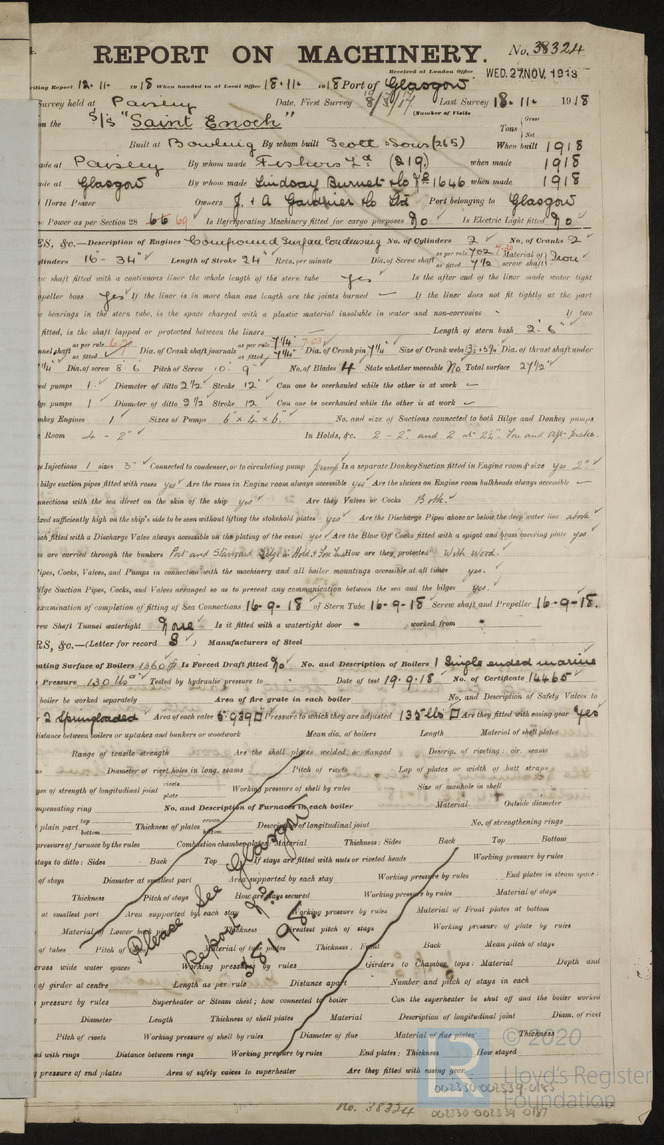 REPORT ON MACHINERY. No. 38324
Received at London Office WED. 27 NOV. 1918
Writing Report 12.11. 1918 When handed in at Local Office 18.11. 1918 Port of Glasgow
Survey held at Paisley Date, First Survey 8/3/17 Last Survey 18.11. 1918
(Number of Visits
on the S/S "Saint Enoch" Tons { Gross Net
Built at Bowling By whom built Scott & Sons (265) When built 1918
made at Paisley By whom made Fishers Ld (219) when made 1918
made at Glasgow By whom made Lindsay Burnet & Co Ld 1646 when made 1918
Horse Power Owners J. & A. Gardner & Co Ltd Port belonging to Glasgow
Power as per Section 28 66 69 Is Refrigerating Machinery fitted for cargo purposes No Is Electric Light fitted No
ES, &c.—Description of Engines Compound Surface Condensing No. of Cylinders 2 No. of Cranks 2
ylinders 16 - 34" Length of Stroke 24 Revs. per minute — Dia. of Screw shaft as per rule 7.02 as fitted 7 1/2 Material of screw shaft Iron
ew shaft fitted with a continuous liner the whole length of the stern tube yes Is the after end of the liner made water tight
propeller boss yes If the liner is in more than one length are the joints burned — If the liner does not fit tightly at the part
e bearings in the stern tube, is the space charged with a plastic material insoluble in water and non-corrosive — If two
fitted, is the shaft lapped or protected between the liners Length of stern bush 2' 6"
nnel shaft as per rule 6.7 as fitted Dia. of Crank shaft journals as per rule 7 1/4" 7.03 as fitted 7 1/4" Dia. of Crank pin 7 1/4 Size of Crank webs Dia. of thrust shaft under
7 1/4" Dia. of screw 8' 6 Pitch of Screw 10' 9" No. of Blades 4 State whether moveable No Total surface 27 1/2
ed pumps 1 Diameter of ditto 2 1/2 Stroke 12" Can one be overhauled while the other is at work —
lge pumps 1 Diameter of ditto 2 1/2 Stroke 12 Can one be overhauled while the other is at work —
nkey Engines 1 Sizes of Pumps 6" x 4" x 6" No. and size of Suctions connected to both Bilge and Donkey pumps
e Room 4 - 2" In Holds, &c. 2 - 2" and 2 at 2 1/2" Fore and Aft Peaks.
ge Injections 1 sizes 3" Connected to condenser, or to circulating pump pump Is a separate Donkey Suction fitted in Engine room & size yes 2"
bilge suction pipes fitted with roses yes Are the roses in Engine room always accessible yes Are the sluices on Engine room bulkheads always accessible —
nnections with the sea direct on the skin of the ship yes Are they Valves or Cocks Both.
xed sufficiently high on the ship's side to be seen without lifting the stokehold plates yes Are the Discharge Pipes above or below the deep water line above
ch fitted with a Discharge Valve always accessible on the plating of the vessel yes Are the Blow Off Cocks fitted with a spigot and brass covering plate yes
es are carried through the bunkers Port and Starboard Bilge in Hold & Fore How are they protected With Wood.
Pipes, Cocks, Valves, and Pumps in connection with the machinery and all boiler mountings accessible at all times yes.
ilge Suction Pipes, Cocks, and Valves arranged so as to prevent any communication between the sea and the bilges yes.
examination of completion of fitting of Sea Connections 16-9-18 of Stern Tube 16-9-18 Screw shaft and Propeller 16-9-18.
rew Shaft Tunnel watertight None Is it fitted with a watertight door - worked from -
RS, &c.—(Letter for record S) Manufacturers of Steel
ating Surface of Boilers 1360 Is Forced Draft fitted No No. and Description of Boilers 1 Single ended marine
Pressure 130 lbs Tested by hydraulic pressure to Date of test 19.9.18 No. of Certificate 14465
boiler be worked separately Area of fire grate in each boiler No. and Description of Safety Valves to
2 Springloaded Area of each valve 5.939 Pressure to which they are adjusted 135 lbs Are they fitted with easing gear Yes
distance between boilers or uptakes and bunkers or woodwork Mean dia. of boilers Length Material of shell plates
Range of tensile strength Are the shell plates welded or flanged Descrip. of riveting: cir. seams
Diameter of rivet holes in long. seams Pitch of rivets Lap of plates or width of butt straps
ges of strength of longitudinal joint rivets plate Working pressure of shell by rules Size of manhole in shell
mpensating ring No. and Description of Furnaces in each boiler Material Outside diameter
plain part top bottom Thickness of plates crown bottom Description of longitudinal joint No. of strengthening rings
pressure of furnace by the rules Combustion chamber plates: Material Thickness: Sides Back Top Bottom
stays to ditto: Sides Back Top If stays are fitted with nuts or riveted heads Working pressure by rules
of stays Diameter at smallest part Area supported by each stay Working pressure by rules End plates in steam space:
Thickness Pitch of stays How are stays secured Working pressure by rules Material of stays
at smallest part Area supported by each stay Working pressure by rules Material of Front plates at bottom
Material of Lower back Thickness Greatest pitch of stays Working pressure of plate by rules
of tubes Pitch of Material of tube plates Thickness: Front Back Mean pitch of stays
cross wide water spaces Working pressures by rules Girders to Chamber tops: Material Depth and
of girder at centre Length as per rule Distance apart Number and pitch of stays in each
pressure by rules Superheater or Steam chest; how connected to boiler Can the superheater be shut off and the boiler worked
Diameter Length Thickness of shell plates Material Description of longitudinal joint Diam. of rivet
Pitch of rivets Working pressure of shell by rules Diameter of flue Material of flue plates Thickness
ed with rings Distance between rings Working pressure by rules End plates: Thickness How stayed
pressure of end plates Area of safety valves to superheater Are they fitted with easing gear
Please See Glasgow
Report No.
38198.
© 2020
Lloyd's Register
Foundation
002330-002339-0185
No. 38324
002330-002339-0187